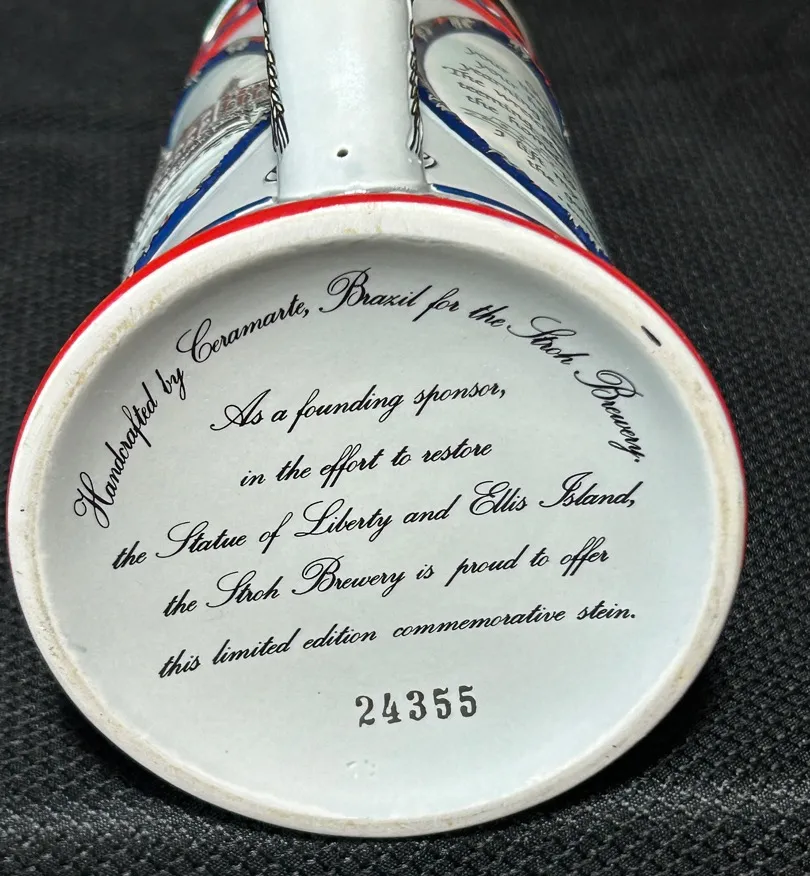 your
your
The
teeming
the
I lift
the
Handcrafted by Ceramarte, Brazil for the Stroh Brewery.
As a founding sponsor,
in the effort to restore
the Statue of Liberty and Ellis Island,
the Stroh Brewery is proud to offer
this limited edition commemorative stein.
24355